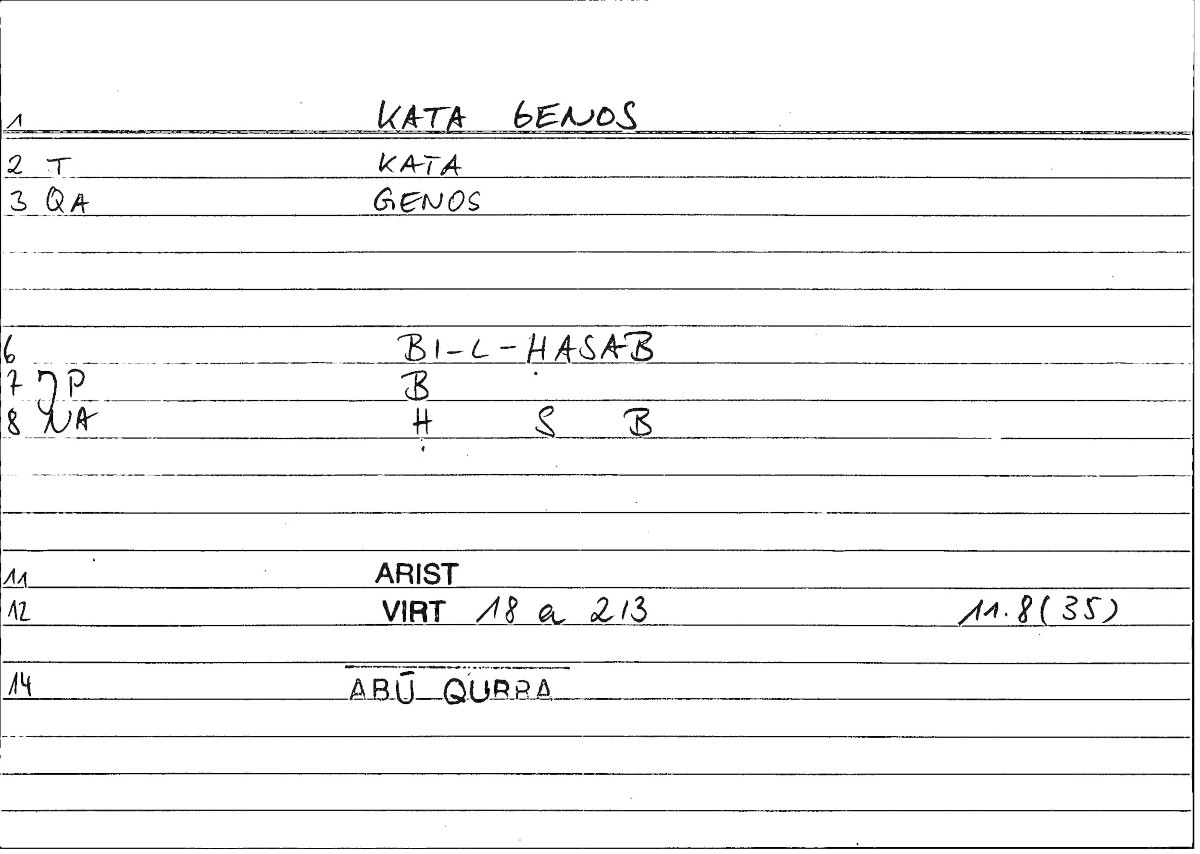 1 KATA GENOS
2 T KATA
3 QA GENOS
6 BI-L-ḤASAB
7 P B
8 NA Ḥ S B
11 ARIST
12 VIRT 18 a 2/3 11.8(35)
14 ABŪ QURRA